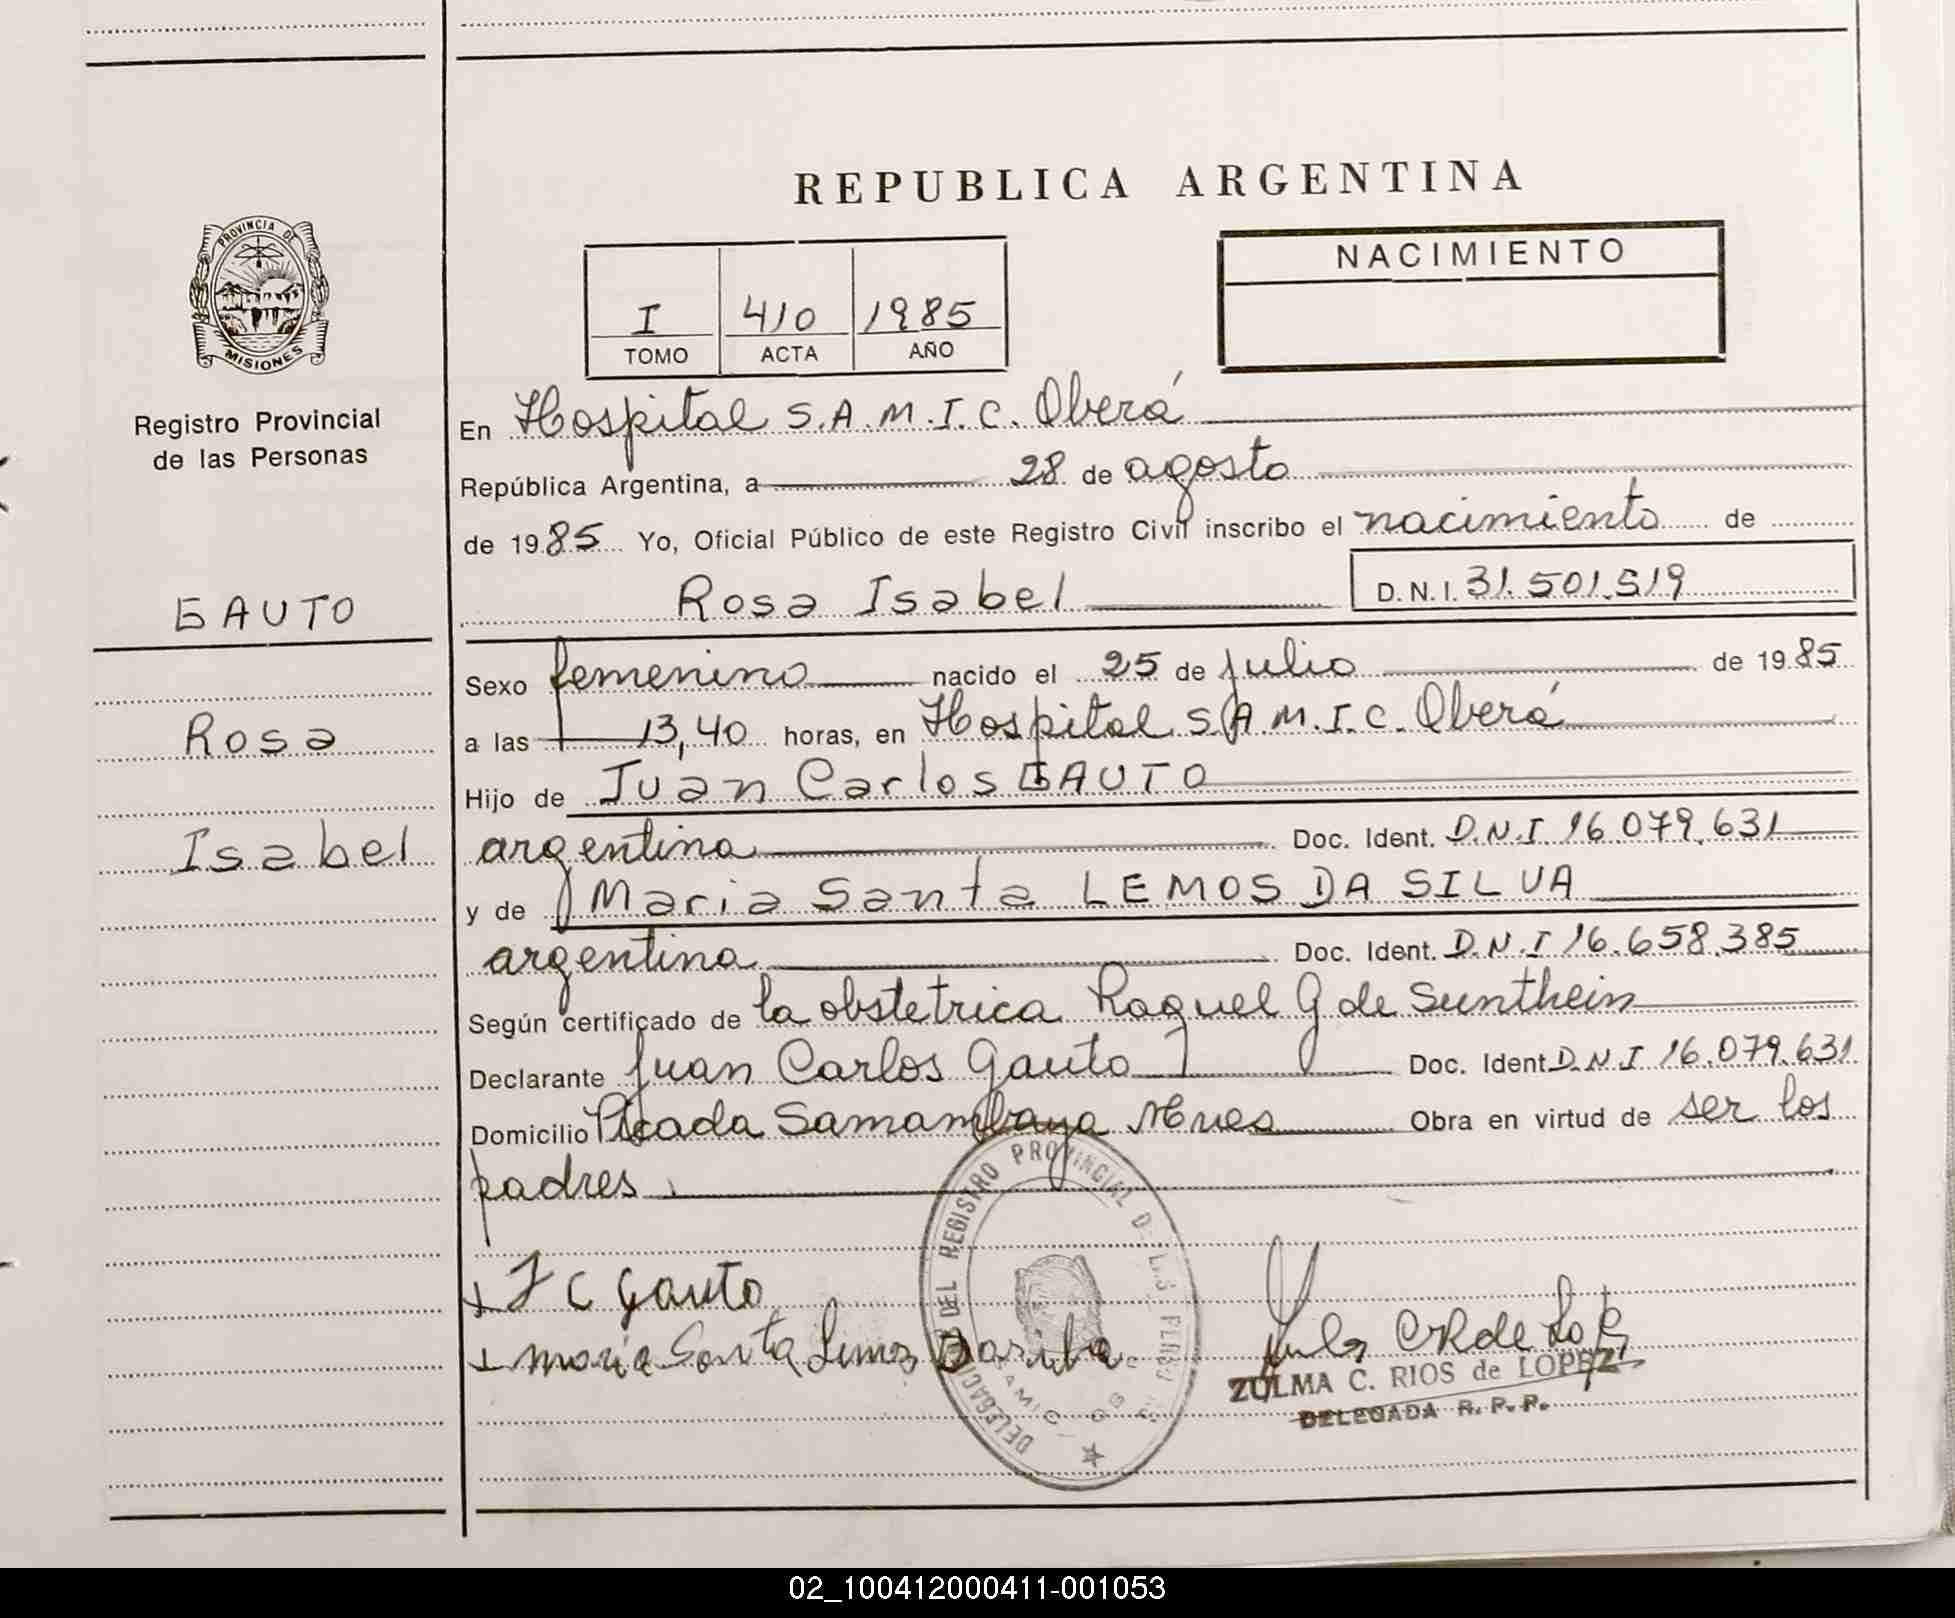 REPUBLICA ARGENTINA
PROVINCIA DE
MISIONES
Registro Provincial
de las Personas
I 410 1985
TOMO ACTA AÑO
NACIMIENTO
En Hospital S.A.M.I.C. Oberá
República Argentina, a 28 de agosto
de 1985 Yo, Oficial Público de este Registro Civil inscribo el nacimiento de
Rosa Isabel D.N.I. 31.501.519
GAUTO
Rosa
Isabel
Sexo femenino nacido el 25 de julio de 1985
a las 13,40 horas, en Hospital S.A.M.I.C. Oberá
Hijo de Juan Carlos GAUTO
argentina Doc. Ident. D.N.I 16.079.631
y de Maria Santa LEMOS DA SILVA
argentina Doc. Ident. D.N.I 16.658.385
Según certificado de la obstetrica Raquel G de Sunthein
Declarante Juan Carlos Gauto Doc. Ident D.N.I 16.079.631
Domicilio Picada Samambaya Mnes Obra en virtud de ser los
padres
J C Gauto
maria Santa Lemos
DELEGACION DEL REGISTRO PROVINCIAL DE LAS
ZULMA C. RIOS de LOPEZ
DELEGADA R. P. P.
02_100412000411-001053